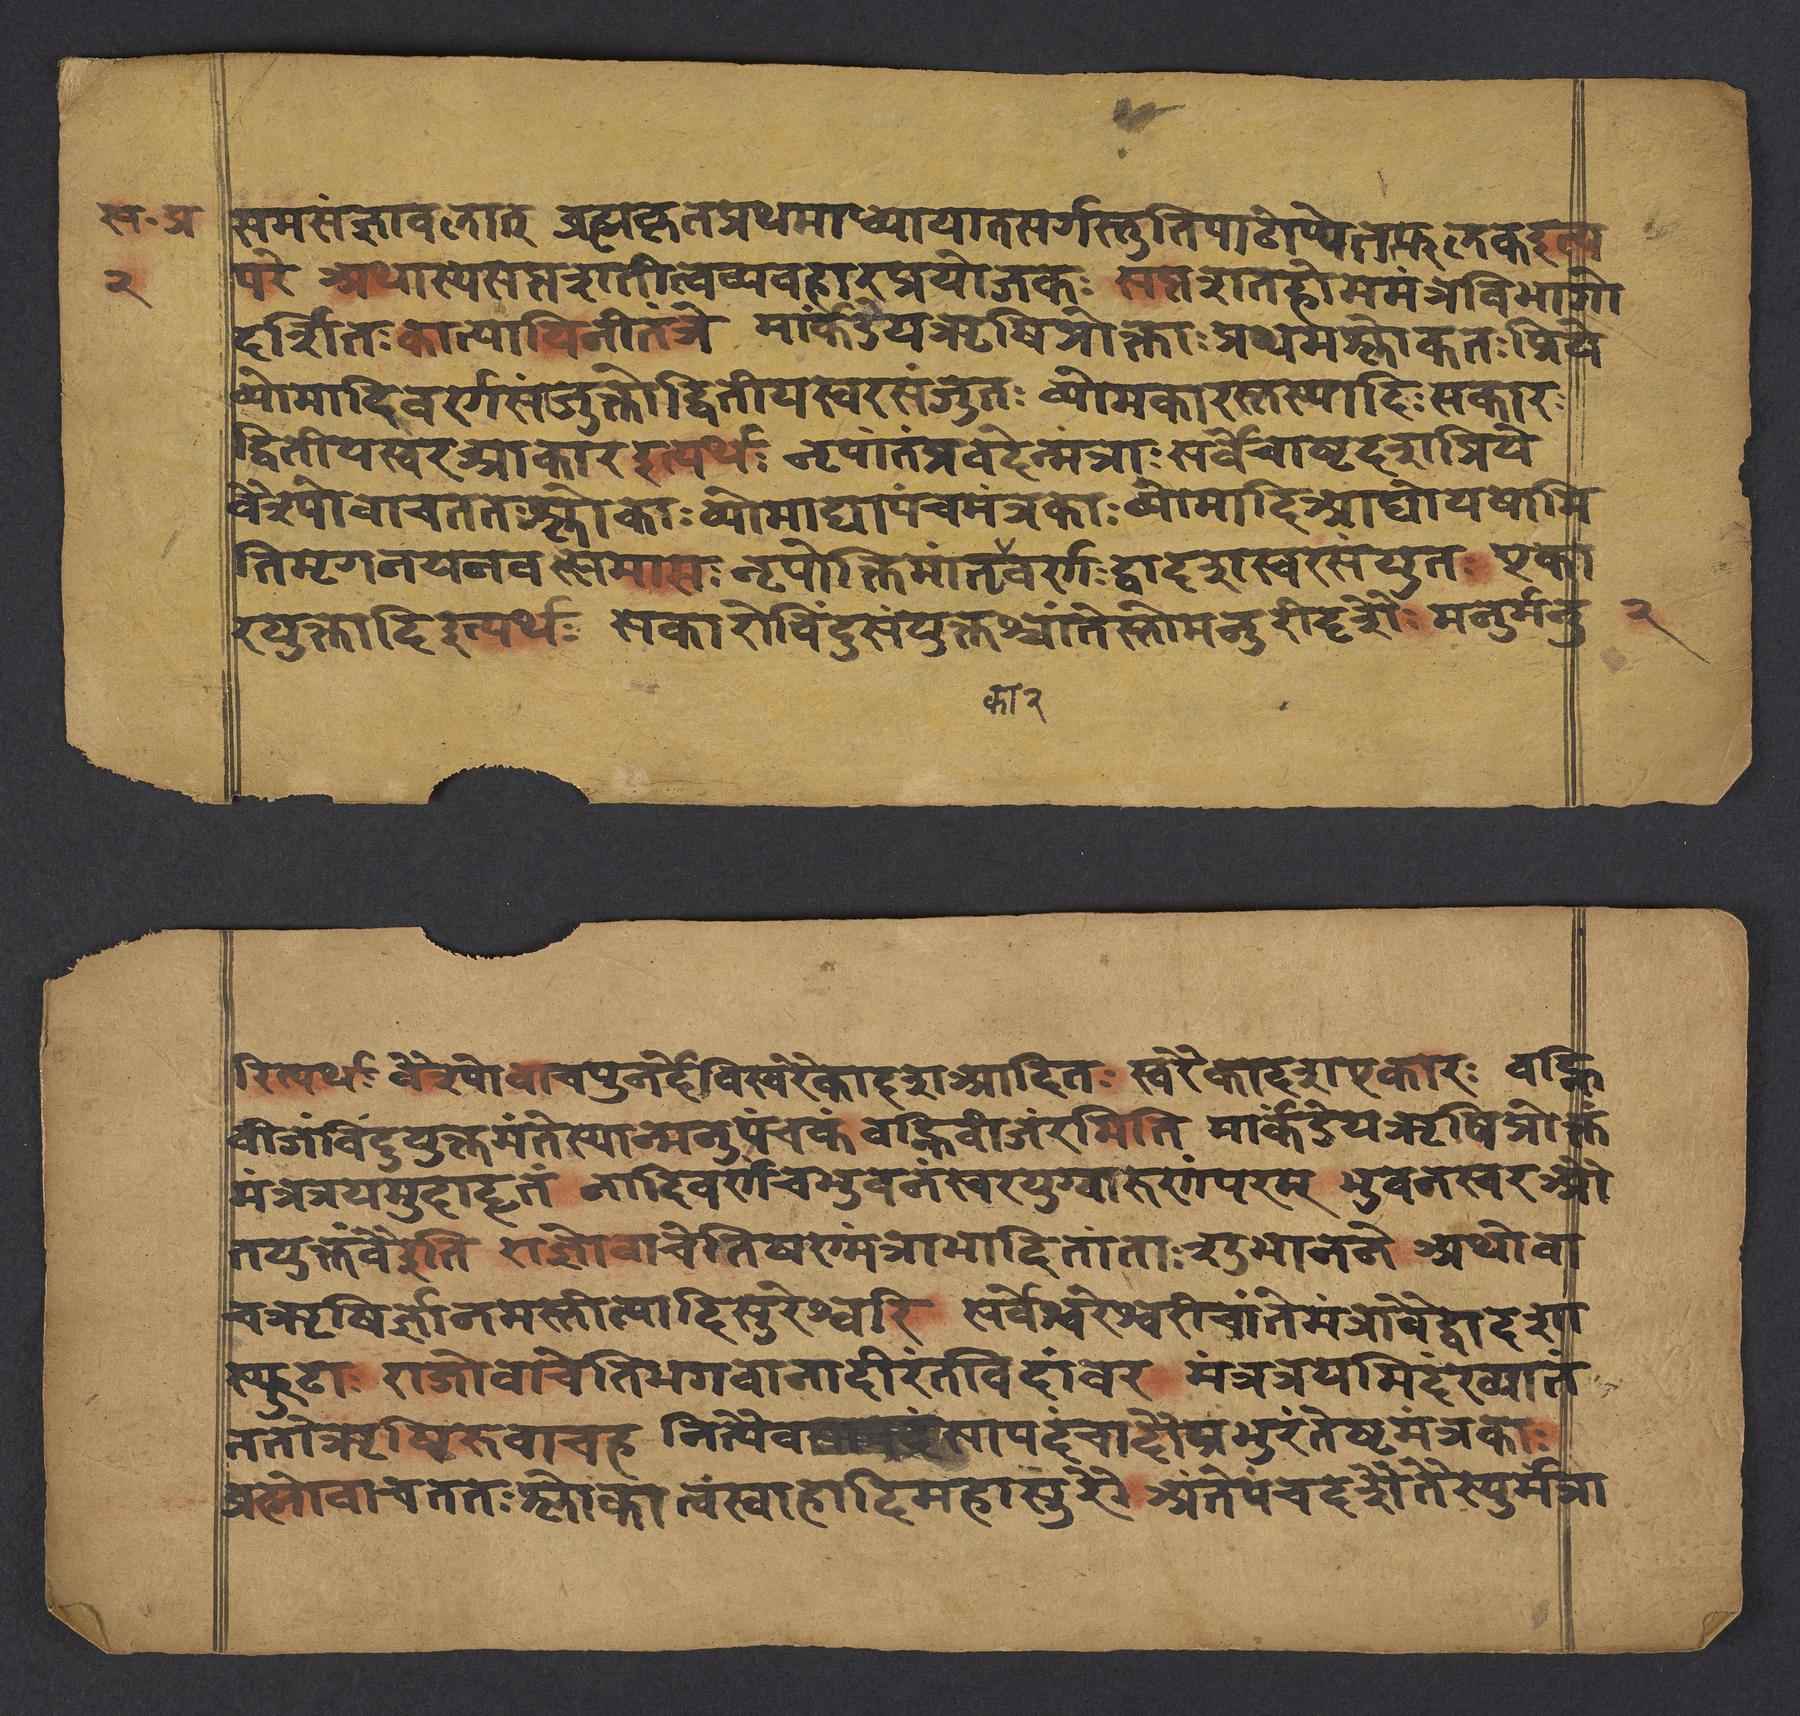 स॰ प्र
२
समसंज्ञावलोत् ब्रह्मकृतप्रथमाध्यायातसर्गस्तुतिपाठोप्येतत्फलकइत्य
परे अथास्यसप्तशतीत्वव्यवहारप्रयोजकः सप्तशतहोममंत्रविभागो
दर्शितःकात्यायिनीतंत्रे मार्कंडेयऋषिप्रोक्ताःप्रथमश्लोकतःप्रिये
व्योमादिवर्णसंजुक्तोद्वितीयस्वरसंजुतः व्योमकारस्तस्यादिःसकारः
द्वितीयस्वरआकारइत्यर्थः नृपांतंप्रवदेन्मंत्राःसर्वेचाष्टदशप्रिये
वैश्योवाचततःश्लोकाःव्योमाद्यापंचमंत्रकाःव्योमादिआद्योयषामि
तिमृगनयनव समासःनृपोक्तिमांतवर्णःद्वादशस्वरसंयुतः एका
रयुक्तादिइत्यर्थः सकारोविंदुसंयुक्तश्चांतेस्तोमनुरीदृशोः मनुर्मनु
२
का२
रित्यर्थः वैश्योवाचपुनर्देविस्वरैकादशआदितः स्वरैकादशएकारः वह्नि
वीजंविंदुयुक्तमंतेस्यान्मनुपंचकं वह्निवीजंरमिति मार्कंडेयऋषिप्रोक्तं
मंत्रत्रयमुदाहृतं नादिवर्णचभुवनंस्वरयुग्वारुणंपरम् भुवनस्वरऔ
तयुक्तंवैइति राज्ञोवाचेतिषण्मंत्राभादितांताःशुभानने अथोवा
चऋषिर्ज्ञानमस्तीत्यादिसुरेश्वरि सर्वेश्वरेश्वरीचांतेमंत्रावैद्वादश
स्फुटाः राजोवाचेतिभगवानादीरंतविदांवर मंत्रत्रयमिदंख्यातं
ततोऋषिरुवाचह नित्यैव सापदंचादौप्रभुरंतेष्टमंत्रकाः
ब्रह्मोवाचततःश्लोकात्वंस्वाहादिमहासुरी अंतेपंचदशैतेस्युर्मंत्रा